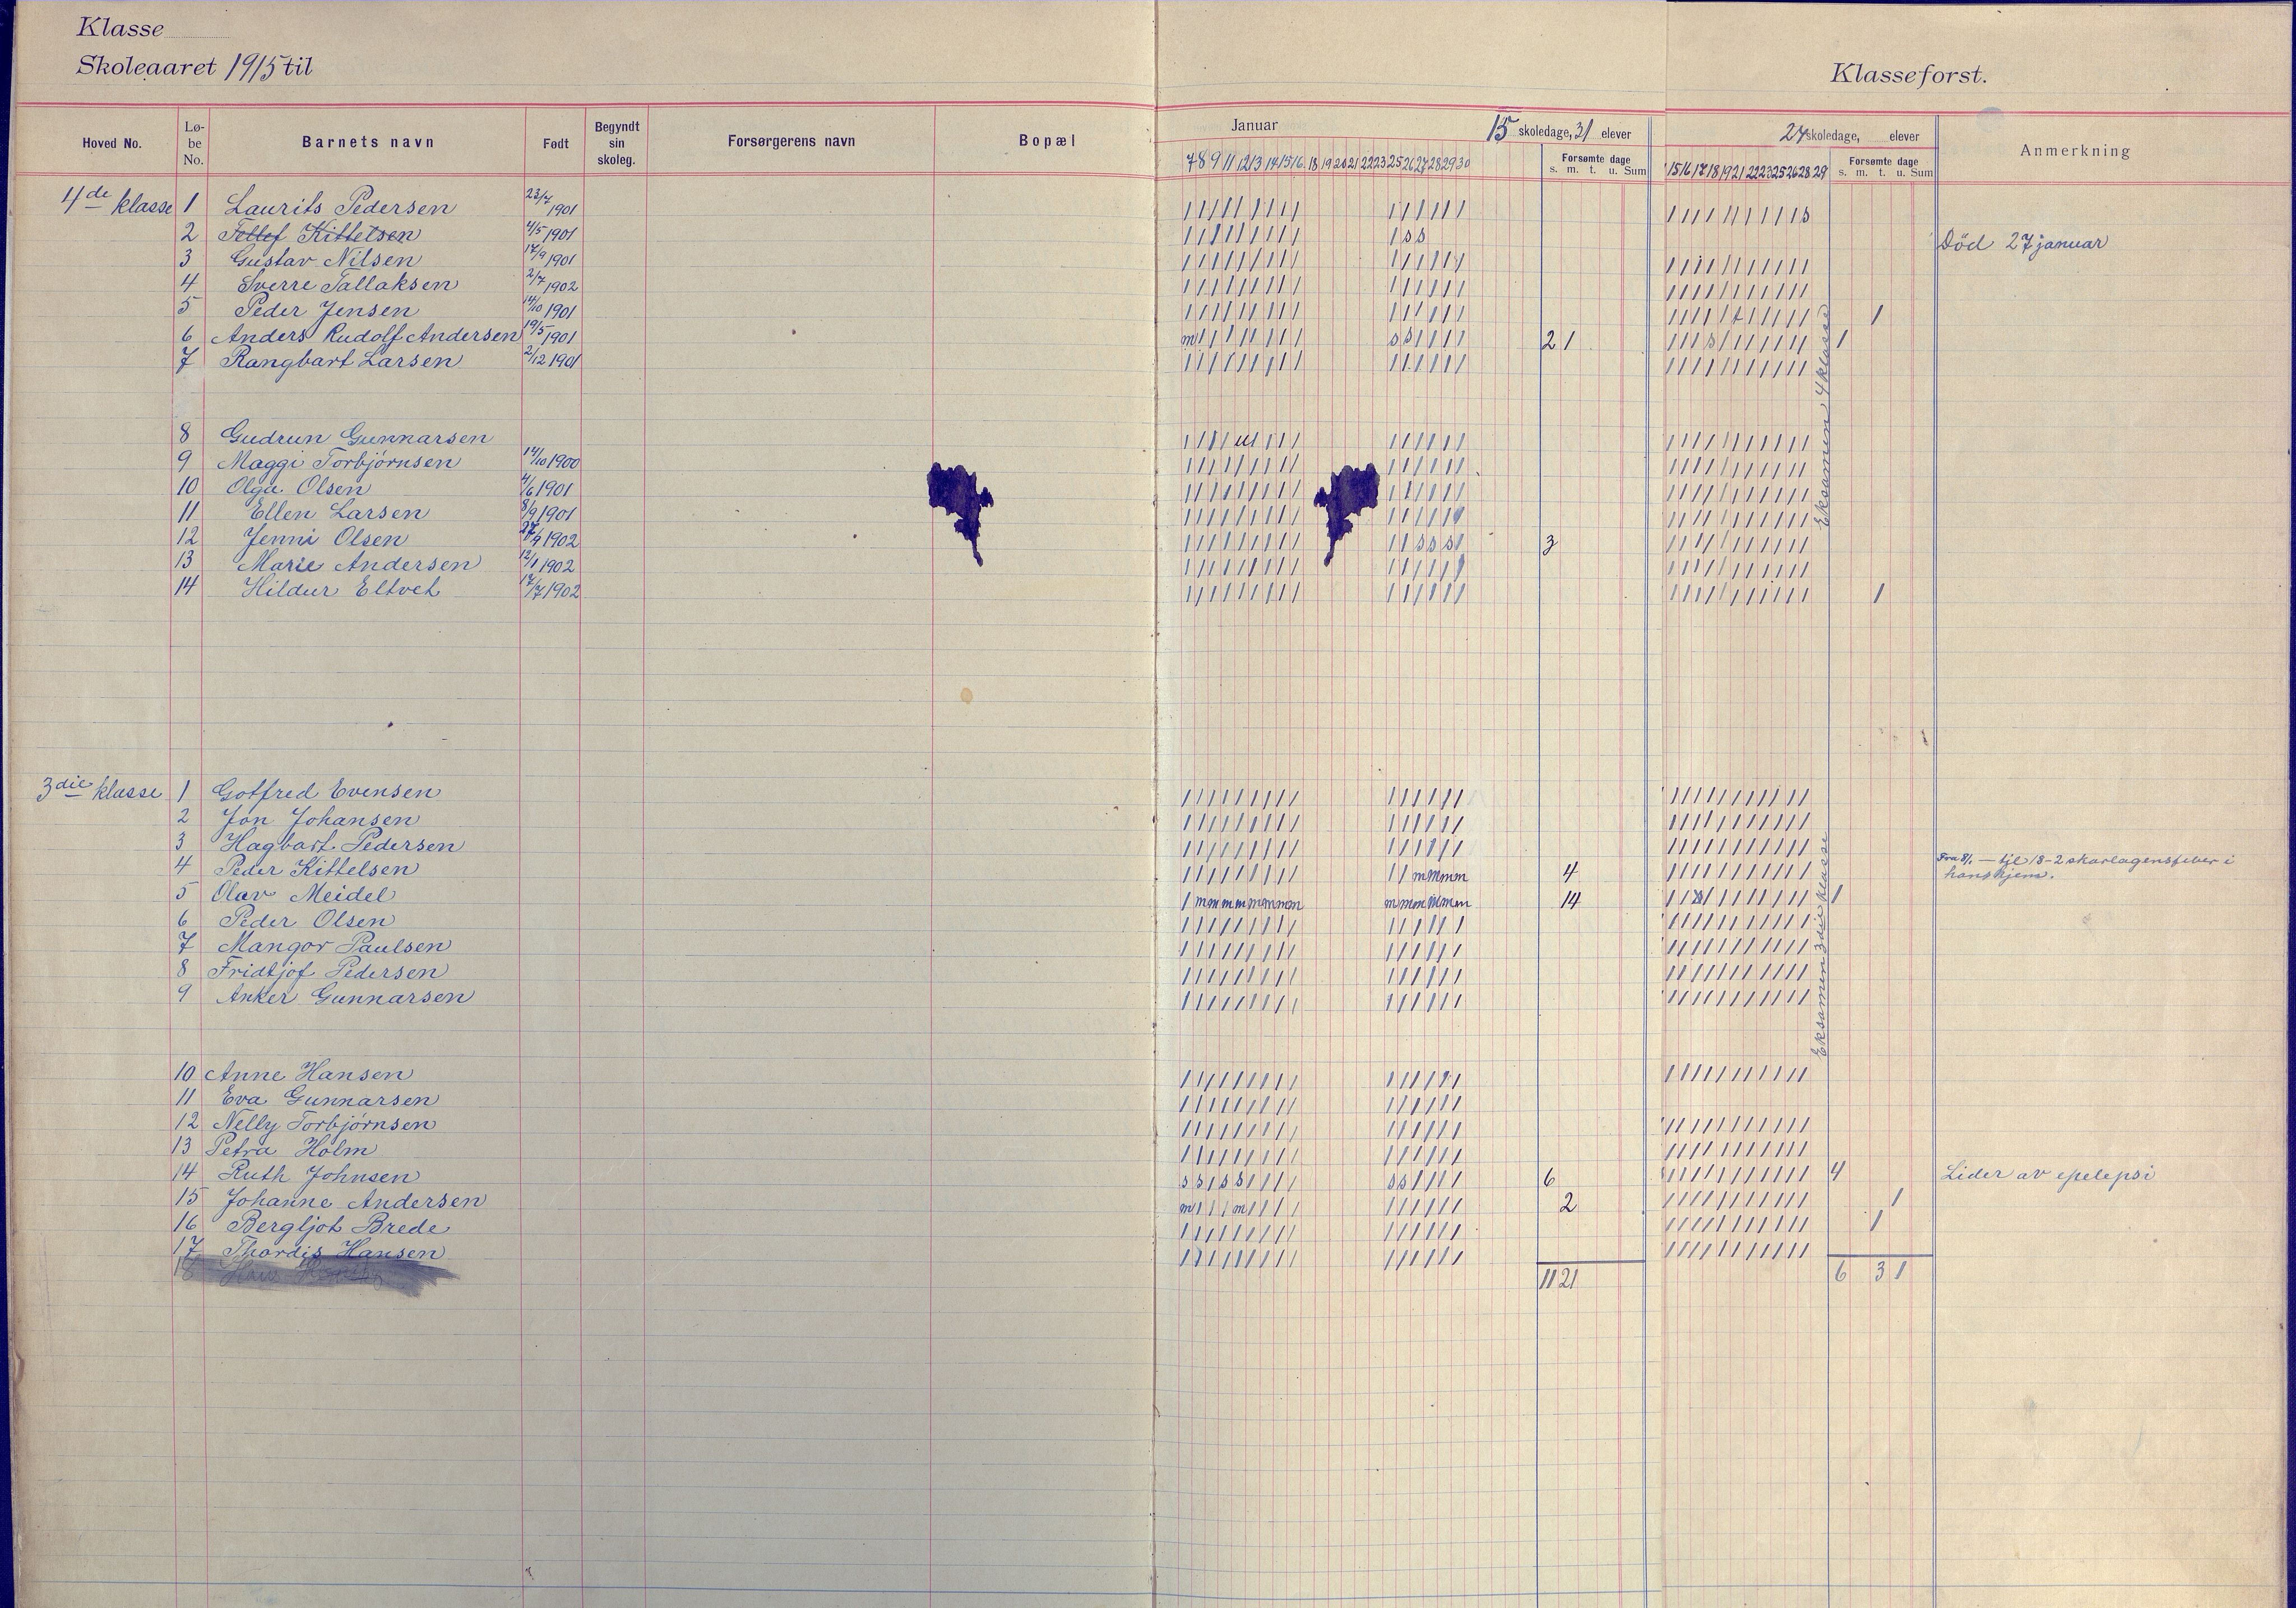 Klasse
Skoleaaret 1915 til
Klasseforst.
Hoved No. Lø-be No. Barnets navn Født Begyndt sin skoleg. Forsørgerens navn Bopæl Januar 15 skoledage, 31 elever 24 skoledage, elever Anmerkning
7 8 9 11 12 13 14 15 16 18 19 20 21 22 23 25 26 27 28 29 30 Forsømte dage s. m. t. u. Sum 15 16 17 18 19 21 22 23 25 26 28 29 Forsømte dage s. m. t. u. Sum
4de klasse 1 Laurits Pedersen 23/7 1901
2 Tellef Kittelsen 4/5 1901 1 s s Död 27 januar
3 Gustav Nilsen 17/9 1901
4 Sverre Tallaksen 2/7 1902
5 Peder Jensen 14/10 1901 1
6 Anders Rudolf Andersen 19/5 1901 2 1 1
7 Rangbart Larsen 2/12 1901
8 Gudrun Gunnarsen
9 Maggi Torbjørnsen 14/10 1900
10 Olga Olsen 4/6 1901
11 Ellen Larsen 8/9 1901
12 Jenni Olsen 1902 3
13 Marie Andersen 12/1 1902
14 Hildur Eltvet 17/7 1902 1
Eksamen 4 klasse
3die klasse 1 Gotfred Evensen
2 Jon Johansen
3 Hagbart Pedersen
4 Peder Kittelsen 1 1 m m m m 4 Fra 8/1 — til 18-2 skarlagensfeber i
hans hjem.
5 Olav Meidel 14 1
6 Peder Olsen
7 Mangor Paulsen
8 Fridtjof Pedersen
9 Anker Gunnarsen
Eksamen 3die klasse
10 Anne Hansen
11 Eva Gunnarsen
12 Nelly Torbjørnsen
13 Petra Holm
14 Ruth Johnsen s s 1 s s 1 1 1 1 s s 1 1 1 1 6 4 Lider av epelepsi
15 Johanne Andersen m 1 1 1 m 1 1 1 1 2 1
16 Bergljot Brede 1
17 Thordis Hansen
18
11 21 6 3 1